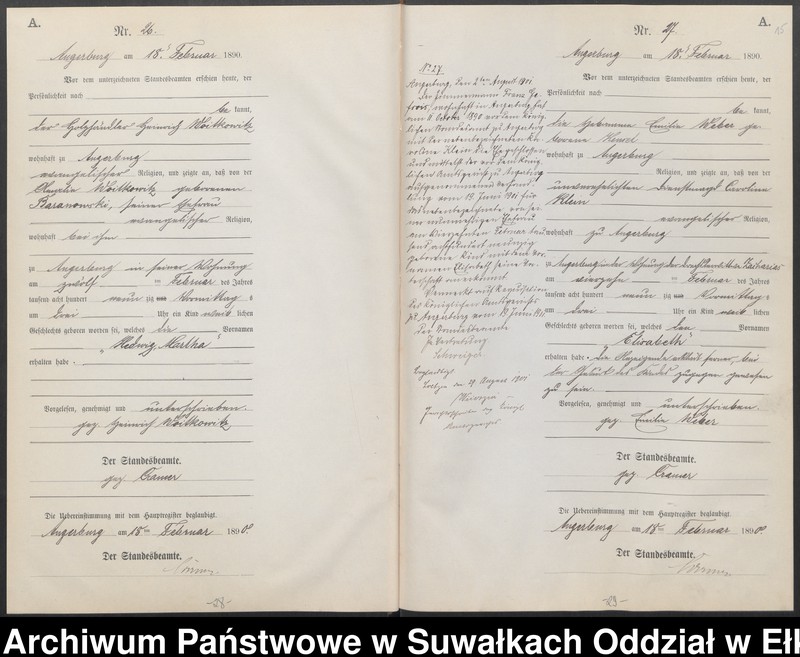 A.
Nr. 26.
Angerburg am 18. Februar 1890.
Vor dem unterzeichneten Standesbeamten erschien heute, der
Persönlichkeit nach
be kannt,
der Holzhändler Heinrich Woitkowitz
wohnhaft zu Angerburg
evangelischer Religion, und zeigte an, daß von der
Woitkowitz geborenen
Baranowski, seiner Ehefrau
evangelischer Religion,
wohnhaft bei ihm
zu Angerburg in seiner Wohnung
am zwölf ten Februar des Jahres
tausend acht hundert neun zig Vormittag s
um drei Uhr ein Kind weib lichen
Geschlechts geboren worden sei, welches die Vornamen
"Hedwig Martha"
erhalten habe.
Vorgelesen, genehmigt und unterschrieben.
gez. Heinrich Woitkowitz
Der Standesbeamte.
gez. Cramer
Die Uebereinstimmung mit dem Hauptregister beglaubigt.
Angerburg am 18ten Februar 1890.
Der Standesbeamte.
Cramer
-28-
A.
15
Nr. 27.
Angerburg am 18. Februar 1890.
Vor dem unterzeichneten Standesbeamten erschien heute, der
Persönlichkeit nach
be kannt,
die Hebamme Emilie Weber ge-
borene
wohnhaft zu Angerburg
Religion, und zeigte an, daß von der
unverehelichten Dienstmagd Caroline
Klein
evangelischer Religion,
wohnhaft zu Angerburg
zu Angerburg in der Wohnung der
am vierzehn ten Februar des Jahres
tausend acht hundert neun zig Vormittag s
um drei Uhr ein Kind weib lichen
Geschlechts geboren worden sei, welches den Vornamen
"Elisabeth"
erhalten habe. Die Anzeigende erklärt ferner, bei
der Geburt des Kindes zugegen gewesen
zu sein.
Vorgelesen, genehmigt und unterschrieben.
gez. Emilie Weber
Der Standesbeamte.
gez. Cramer
Die Uebereinstimmung mit dem Hauptregister beglaubigt.
Angerburg am 18ten Februar 1890.
Der Standesbeamte.
Cramer
-29-
No 27.
Angerburg, den 2ten August 1901
Der Zimmermann Franz
wohnhaft in Angerburg hat
am Oktober 1890 vor dem König-
lichen Standesamt zu Angerburg
Klein die Ehe geschlossen
und mittelst der vor dem König-
lichen Amtsgericht zu Angerburg
aufgenommenen Verhand-
lung vom 19. Juni 1901
am vierzehnten Februar tau-
send achthundert neunzig
geborene Kind mit dem Vor-
namen Elisabeth seine Va-
terschaft anerkannt.
Vermerkt auf Requisition
des Königlichen Amtsgerichts
zu Angerburg vom 19 Juni 1901
Der Standesbeamte
In Vertretung
Beglaubigt
Loetzen den 29 August 1901
Archiwum Państwowe w Suwałkach Oddział w Ełk